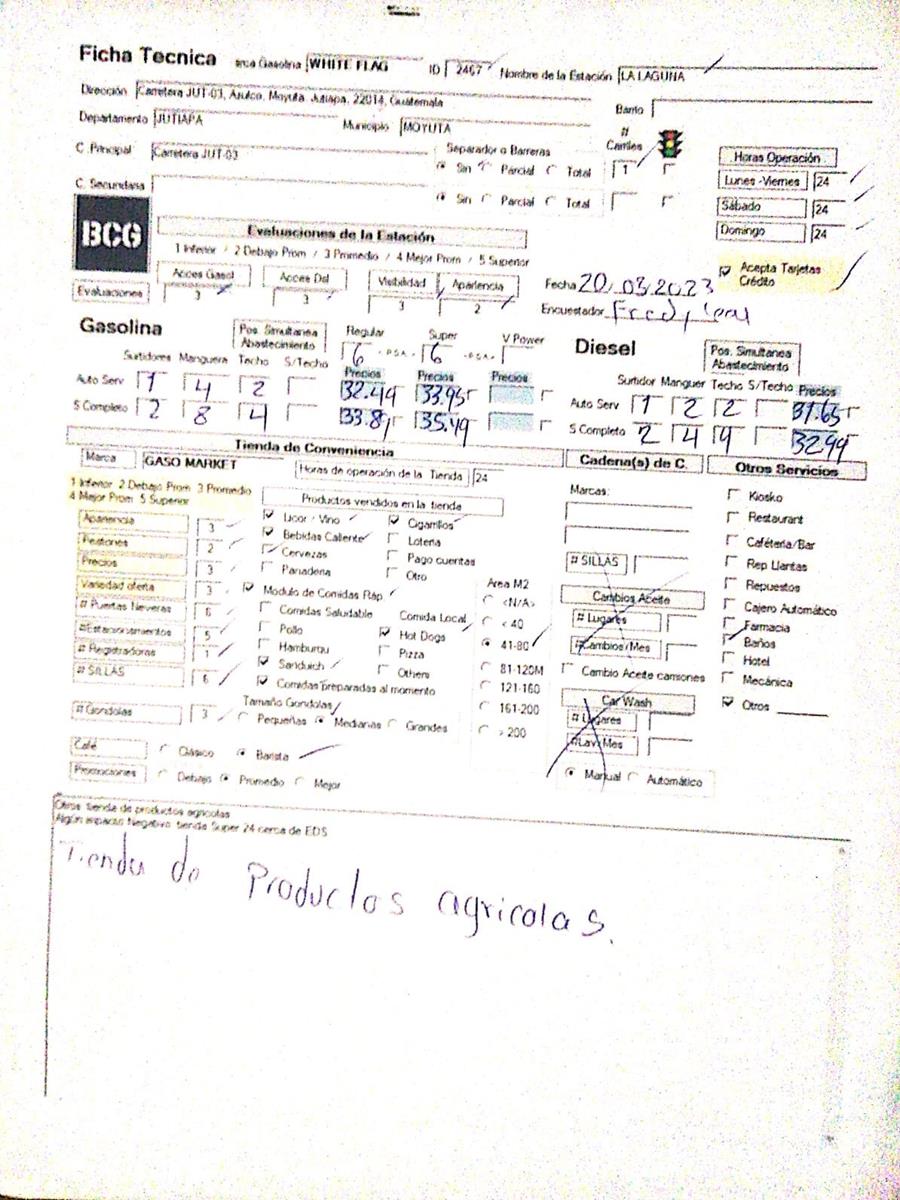 Ficha Tecnica arca Gasolina WHITE FLAG ID 2467 Nombre de la Estación LA LAGUNA
Dirección Carretera JUT-03, Azulco, Moyuta, Jutiapa, 22014, Guatemala Barrio
Departamento JUTIAPA Municipio MOYUTA
# Carriles
C. Principal Carretera JUT-03 Separador o Barreras Sin Parcial Total 1
C. Secundaria Sin Parcial Total
Horas Operación
Lunes -Viernes 24
Sábado 24
Domingo 24
BCG
Evaluaciones de la Estación
1 Inferior / 2 Debajo Prom / 3 Promedio / 4 Mejor Prom / 5 Superior
Acces Gasol Acces Dsl Visibilidad Apariencia
Evaluaciones 3 3 3 2
Acepta Tarjetas Crédito
Fecha 20.03.2023
Encuestador Fredy
Gasolina
Pos. Simultanea Abastecimiento
Regular Super V Power
6 6
Surtidores Manguera Techo S/Techo Precios Precios Precios
Auto Serv 1 4 2 32.49 33.95
S Completo 2 8 4 33.89 35.49
Diesel
Pos. Simultanea Abastecimiento
Surtidor Manguer Techo S/Techo Precios
Auto Serv 1 2 2 31.65
S Completo 2 4 4 32.99
Tienda de Conveniencia
Marca GASO MARKET Horas de operación de la Tienda 24
1 Inferior 2 Debajo Prom 3 Promedio
4 Mejor Prom 5 Superior
Apariencia 3
2
Precios 3
Variedad oferta 3
# Puertas Neveras 6
#Estacionamientos 5
# Registradoras 1
# SILLAS 6
# Gondolas 3
Productos vendidos en la tienda
Licor / Vino Cigarrillos
Bebidas Caliente Loteria
Cervezas Pago cuentas
Panaderia Otro
Modulo de Comidas Ráp
Comidas Saludable Comida Local
Pollo Hot Dogs
Hamburgu Pizza
Sandwich Others
Comidas preparadas al momento
Tamaño Gondolas
Pequeñas Medianas Grandes
Café Clásico Barista
Promociones Debajo Promedio Mejor
Area M2
<N/A>
< 40
41-80
81-120M
121-160
161-200
> 200
Cadena(s) de C.
Marcas:
# SILLAS
Cambios Aceite
# Lugares
#Cambios/Mes
Cambio Aceite camiones
Car Wash
# Lugares
#Lav/Mes
Manual Automático
Otros Servicios
Kiosko
Restaurant
Caféteria/Bar
Rep Llantas
Repuestos
Cajero Automático
Farmacia
Baños
Hotel
Mecánica
Otros
Otros: tienda de productos agricolas
Algún espacio Negativo: tienda Super 24 cerca de EDS
Tienda de Productos agricolas.